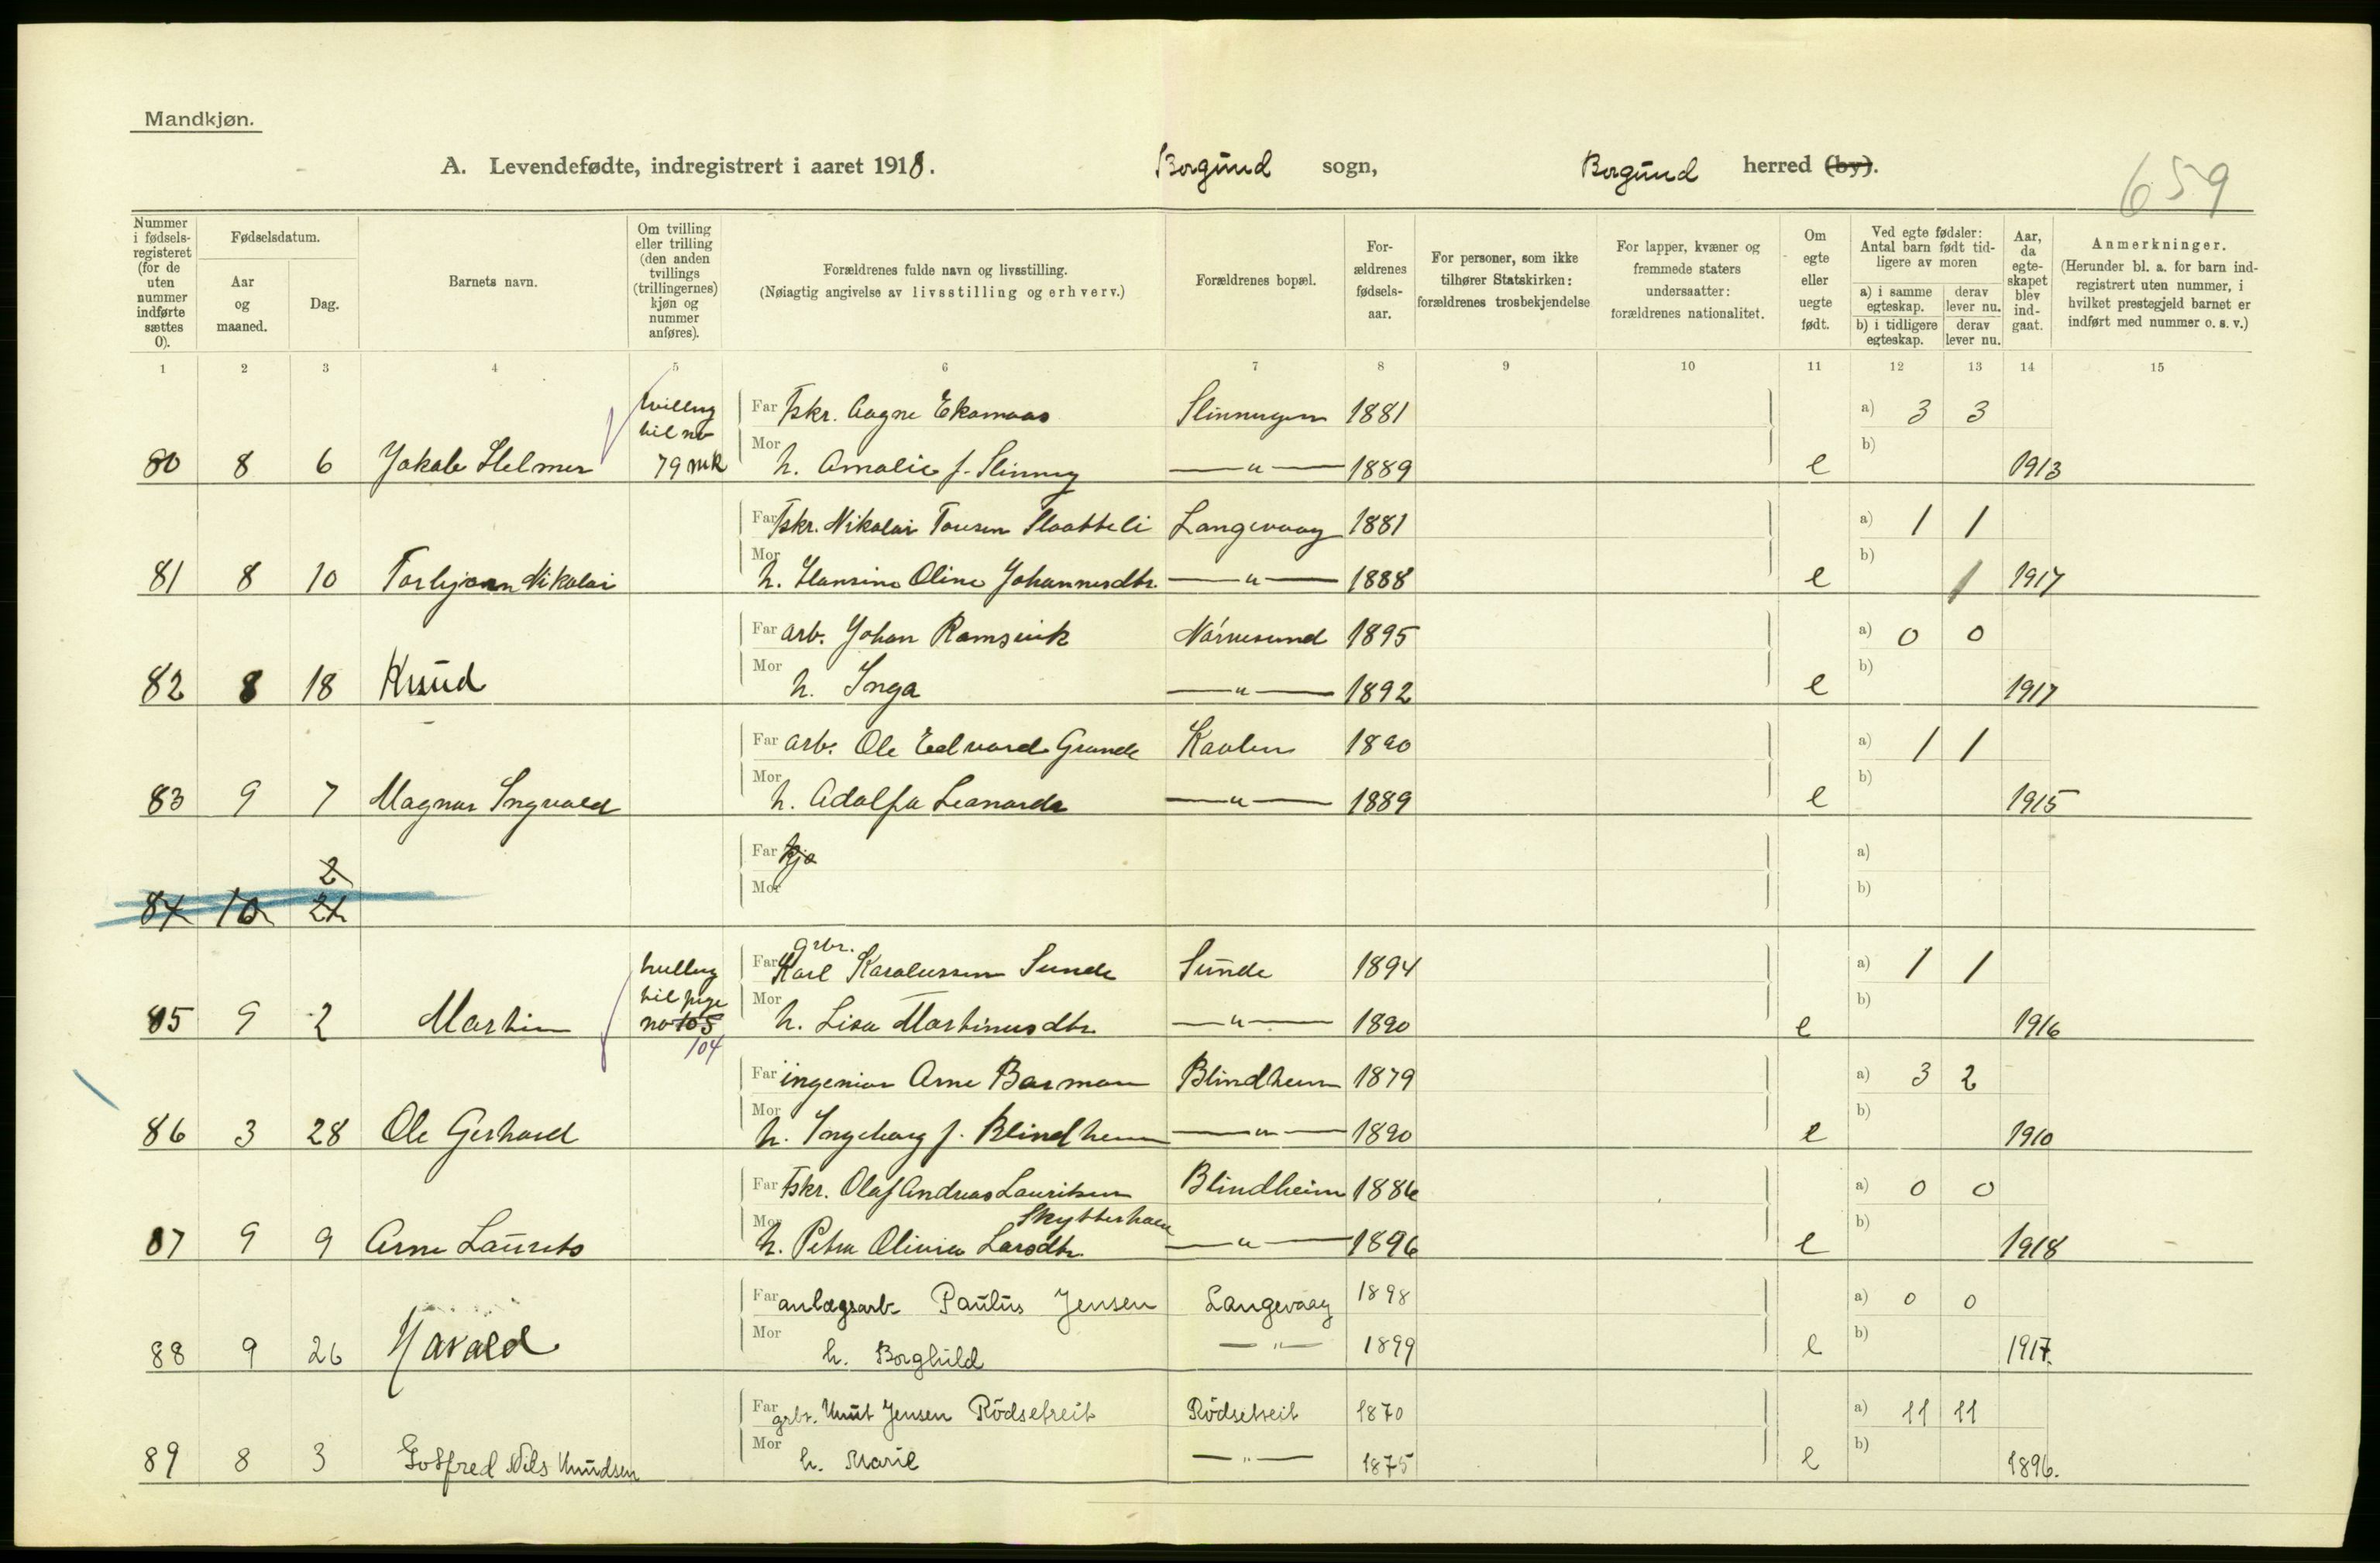 Mandkjøn.
A. Levendefødte, indregistrert i aaret 1918. Borgund sogn, Borgund herred (by).
659
Nummer i fødsels-registeret (for de uten nummer indførte sættes 0).
Fødselsdatum.
Aar og maaned.
Dag.
Barnets navn.
Om tvilling eller trilling (den anden tvillings (trillingernes) kjøn og nummer anføres).
Forældrenes fulde navn og livsstilling.
(Nøiagtig angivelse av livsstilling og erhverv.)
Forældrenes bopæl.
For-ældrenes fødsels-aar.
For personer, som ikke tilhører Statskirken: forældrenes trosbekjendelse
For lapper, kvæner og fremmede staters undersaatter: forældrenes nationalitet.
Om egte eller uegte født.
Ved egte fødsler: Antal barn født tid-ligere av moren
a) i samme egteskap. derav lever nu.
b) i tidligere egteskap. derav lever nu.
Aar, da egte-skapet blev ind-gaat.
Anmerkninger.
(Herunder bl. a. for barn ind-registrert uten nummer, i hvilket prestegjeld barnet er indført med nummer o. s. v.)
1 2 3 4 5 6 7 8 9 10 11 12 13 14 15
tvilling til no 79 mk
Far Fskr. Aagne Ekornaas Slinningen 1881 a) 3 3
80 8 6 Jakob Helmer Mor h. Amalie f. Slinning —"— 1889 e b) 1913
Far Fskr. Nikolai Tousen Slaatteli Langevaag 1881 a) 1 1
81 8 10 Torbjørn Nikolai Mor h. Hansine Oline Johannesdtr. —"— 1888 e b) 1 1917
Far arb. Johan Ramsvik Nørvesund 1895 a) 0 0
82 8 18 Knud Mor h. Inga —"— 1892 e b) 1917
Far arb. Ole Edvard Grande Kaalen 1890 a) 1 1
83 9 7 Magnar Ingvald Mor h. Adolfa Leonarda —"— 1889 e b) 1915
Far a)
2
84 10 21 Mor b)
tvilling til pige no 105 104
Far grbr. Karl Karolussen Sunde Sunde 1894 a) 1 1
85 9 2 Martin Mor h. Lisa Martinusdtr. —"— 1890 e b) 1916
Far ingeniør Arne Barman Blindheim 1879 a) 3 2
86 3 28 Ole Gerhard Mor h. Ingeborg f. Blindheim —"— 1890 e b) 1910
Far Fskr. Olaf Andreas Lauritsen Blindheim 1886 a) 0 0
Skytterholm
87 9 9 Arne Laurits Mor h. Petra Olivia Larsdtr. —"— 1896 e b) 1918
Far anlægsarb. Paulus Jensen Langevaag 1898 a) 0 0
88 9 26 Harald Mor h. Borghild —"— 1899 e b) 1917.
Far grbr. Knut Jensen Rödsetreit Rödsetreit 1870 a) 11 11
89 8 3 Gotfred Nils Knudsen Mor h. Marie —"— 1875 e b) 1896.